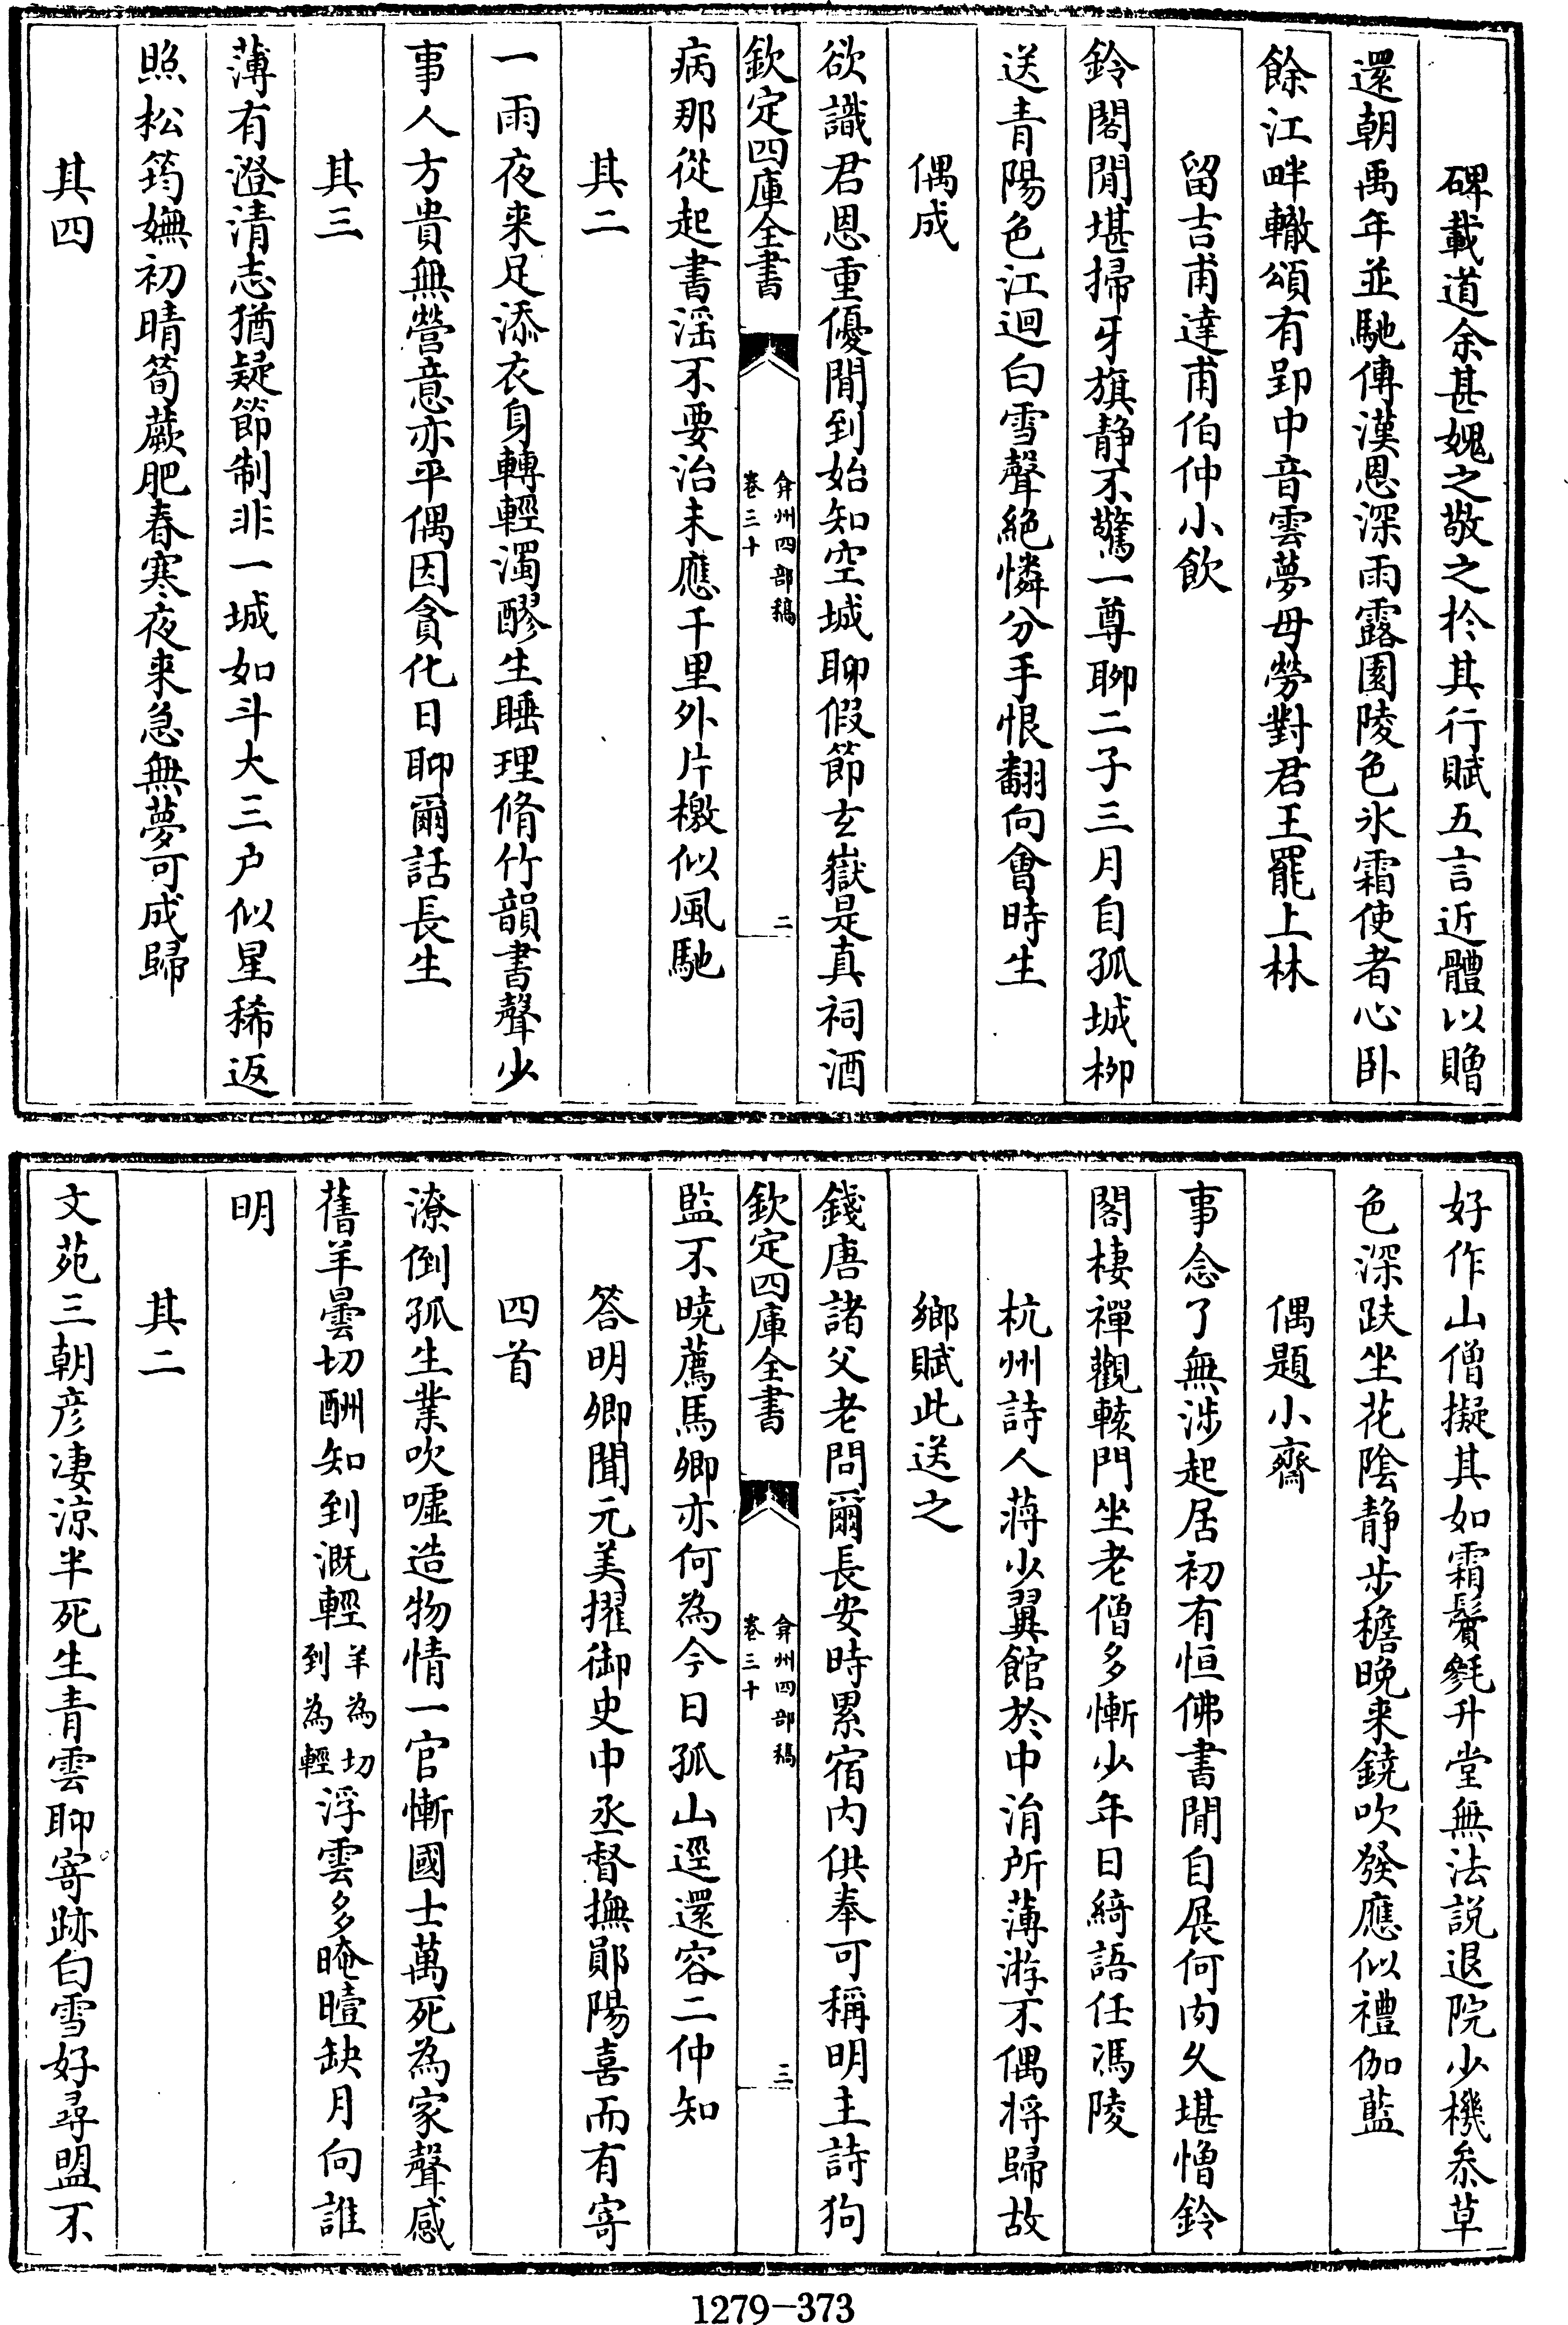 碑載道余甚媿之敬之於其行賦五言近體以贈
還朝禹年並馳傳漢恩深雨露園陵色氷霜使者心卧
餘江畔轍頌有郢中音雲夢毋勞對君王罷上林
留吉甫達甫伯仲小飲
鈴閣閒堪掃牙旗静不驚一尊聊二子三月自孤城栁
送青陽色江迴白雪聲絶憐分手恨翻向會時生
偶成
欲識君恩重優閒到始知空城聊假節玄嶽是真祠酒
欽定四庫全書
弇州四部稿
卷三十
二
病那從起書滛不要治未應千里外片檄似風馳
其二
一雨夜来足添衣身轉輕濁醪生睡理脩竹韻書聲少
事人方貴無營意亦平偶因貪化日聊爾話長生
其三
薄有澄清志猶疑節制非一城如斗大三户似星稀返
照松筠嫵初晴筍蕨肥春寒夜来急無夢可成歸
其四
好作山僧擬其如霜鬢毿升堂無法説退院少機叅草
色深趺坐花陰静步檐晚来鐃吹發應似禮伽藍
偶題小齋
事念了無涉起居初有恒佛書閒自展何肉久堪憎鈴
閣棲禪觀轅門坐老僧多慚少年日綺語任馮陵
杭州詩人蔣少翼館於中涓所薄游不偶將歸故
鄉賦此送之
錢唐諸父老問爾長安時累宿内供奉可稱明主詩狗
欽定四庫全書
弇州四部稿
卷三十
三
監不曉薦馬卿亦何為今日孤山逕還容二仲知
答明卿聞元美擢御史中丞督撫鄖陽喜而有寄
四首
潦倒孤生業吹噓造物情一官慚國士萬死為家聲感
舊羊曇切酬知到溉輕羊為切到為輕浮雲多晻曀缺月向誰
明
其二
文苑三朝彦凄涼半死生青雲聊寄跡白雪好尋盟不
1279-373